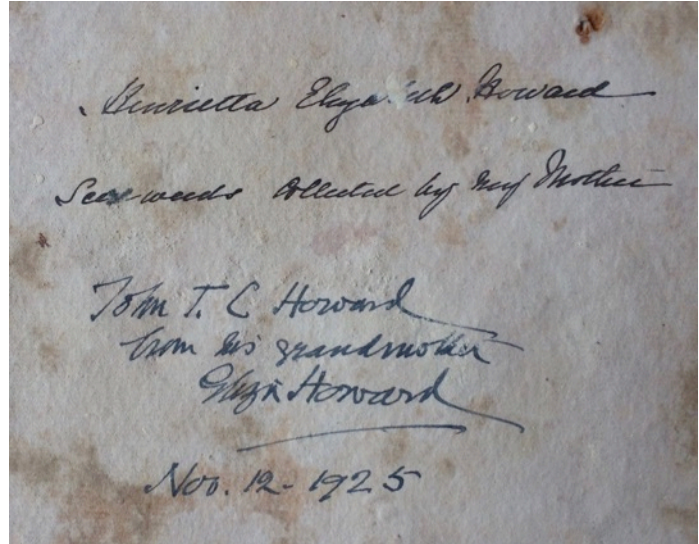 Henrietta Elizabeth Howard
Sea-weeds collected by my Mother
John T. C Howard
from his grandmother
Eliza Howard
Nov. 12 - 1925